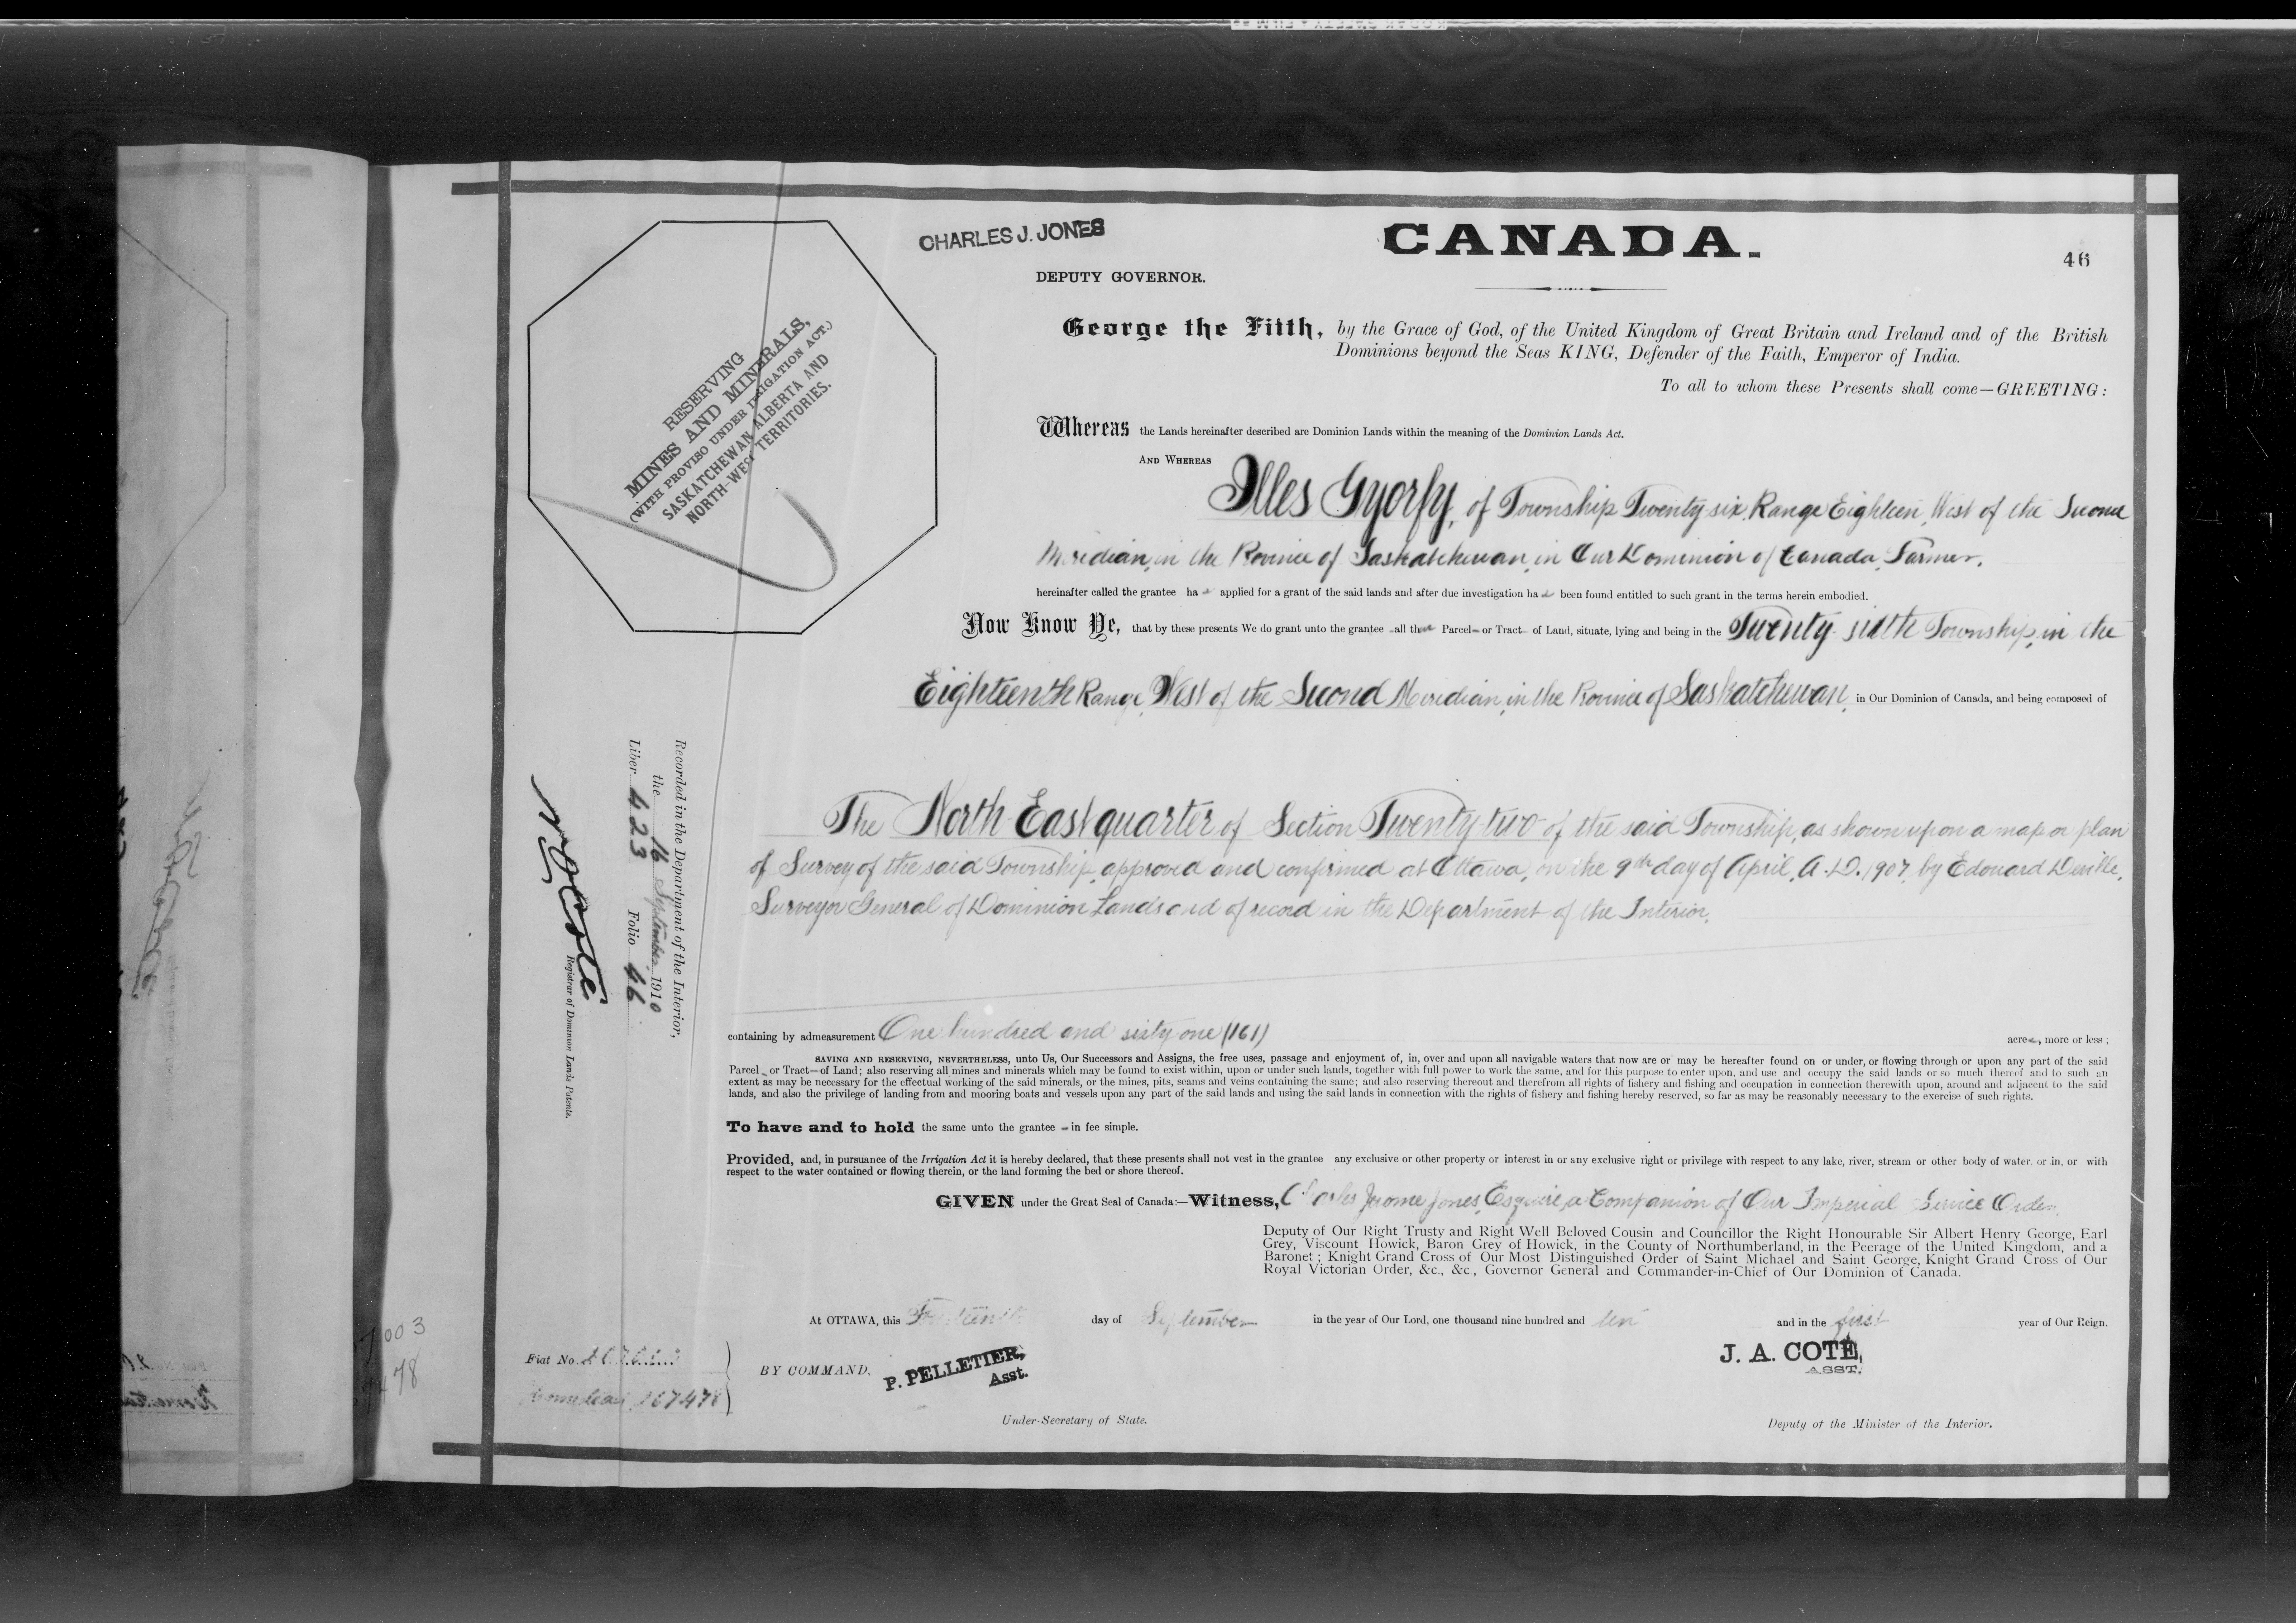 CHARLES J. JONES
CANADA.
46
DEPUTY GOVERNOR.
George the Fifth, by the Grace of God, of the United Kingdom of Great Britain and Ireland and of the British
Dominions beyond the Seas KING, Defender of the Faith, Emperor of India.
To all to whom these Presents shall come—GREETING:
RESERVING
MINES AND MINERALS,
(WITH PROVISO UNDER IRRIGATION ACT.)
SASKATCHEWAN ALBERTA AND
NORTH-WEST TERRITORIES.
Whereas the Lands hereinafter described are Dominion Lands within the meaning of the Dominion Lands Act.
AND WHEREAS
Illes Gyorfy, of Township Twenty-six, Range Eighteen, West of the Second
Meridian, in the Province of Saskatchewan, in Our Dominion of Canada, Farmer,
hereinafter called the grantee ha applied for a grant of the said lands and after due investigation ha been found entitled to such grant in the terms herein embodied.
Now Know Ye, that by these presents We do grant unto the grantee all that Parcel or Tract of Land, situate, lying and being in the Twenty-sixth Township, in the
Eighteenth Range, West of the Second Meridian, in the Province of Saskatchewan, in Our Dominion of Canada, and being composed of
The North East quarter of Section Twenty-two of the said Township, as shown upon a map or plan
of Survey of the said Township, approved and confirmed at Ottawa, on the 9th day of April, A.D. 1907, by Edouard Deville,
Surveyor General of Dominion Lands and of record in the Department of the Interior,
Recorded in the Department of the Interior,
the 16 September 1910
Liber 423 Folio 46
N O Coté
Registrar of Dominion Lands Patents.
containing by admeasurement One hundred and sixty-one (161) acres, more or less;
SAVING AND RESERVING, NEVERTHELESS, unto Us, Our Successors and Assigns, the free uses, passage and enjoyment of, in, over and upon all navigable waters that now are or may be hereafter found on or under, or flowing through or upon any part of the said
Parcel or Tract of Land; also reserving all mines and minerals which may be found to exist within, upon or under such lands, together with full power to work the same, and for this purpose to enter upon, and use and occupy the said lands or so much thereof and to such an
extent as may be necessary for the effectual working of the said minerals, or the mines, pits, seams and veins containing the same; and also reserving thereout and therefrom all rights of fishery and fishing and occupation in connection therewith upon, around and adjacent to the said
lands, and also the privilege of landing from and mooring boats and vessels upon any part of the said lands and using the said lands in connection with the rights of fishery and fishing hereby reserved, so far as may be reasonably necessary to the exercise of such rights.
To have and to hold the same unto the grantee in fee simple.
Provided, and, in pursuance of the Irrigation Act it is hereby declared, that these presents shall not vest in the grantee any exclusive or other property or interest in or any exclusive right or privilege with respect to any lake, river, stream or other body of water, or in, or with
respect to the water contained or flowing therein, or the land forming the bed or shore thereof.
GIVEN under the Great Seal of Canada:—Witness, Charles Jerome Jones, Esquire, a Companion of Our Imperial Service Order,
Deputy of Our Right Trusty and Right Well Beloved Cousin and Councillor the Right Honourable Sir Albert Henry George, Earl
Grey, Viscount Howick, Baron Grey of Howick, in the County of Northumberland, in the Peerage of the United Kingdom, and a
Baronet; Knight Grand Cross of Our Most Distinguished Order of Saint Michael and Saint George, Knight Grand Cross of Our
Royal Victorian Order, &c., &c., Governor General and Commander-in-Chief of Our Dominion of Canada.
At OTTAWA, this day of September in the year of Our Lord, one thousand nine hundred and ten and in the first year of Our Reign.
Fiat No.
Homestead 167478
BY COMMAND,
P. PELLETIER,
Asst.
J. A. COTÉ,
ASST.
Under-Secretary of State.
Deputy of the Minister of the Interior.